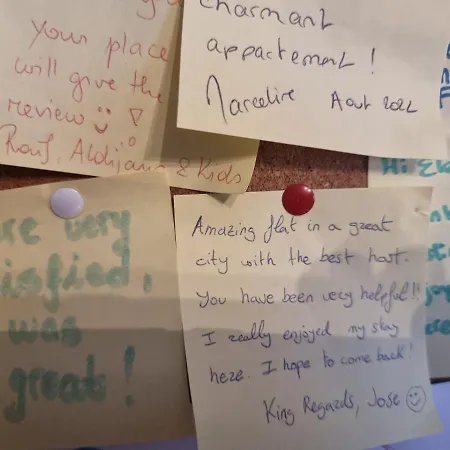 your place
will give the
review
Rouf, Aldijana & Kids
charmant
appartement !
Marceline Aout 2022
Hi
are very
satisfied,
was
great !
Amazing flat in a great
city with the best host.
You have been very helpful!!
I really enjoyed my stay
heze. I hope to come back!
King Regards, Jose